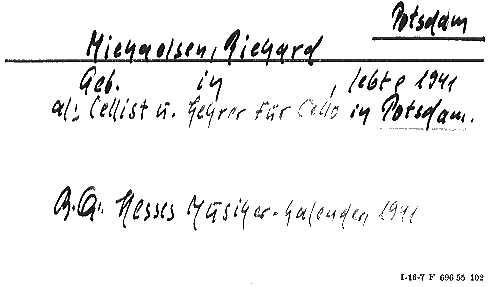 Potsdam
Michaelsen, Richard
Geb. in , lebte 1941
als Cellist u. Lehrer für Cello in Potsdam.
Hesses Musiker-Kalender 1941
I-16-7 F 696 55 102